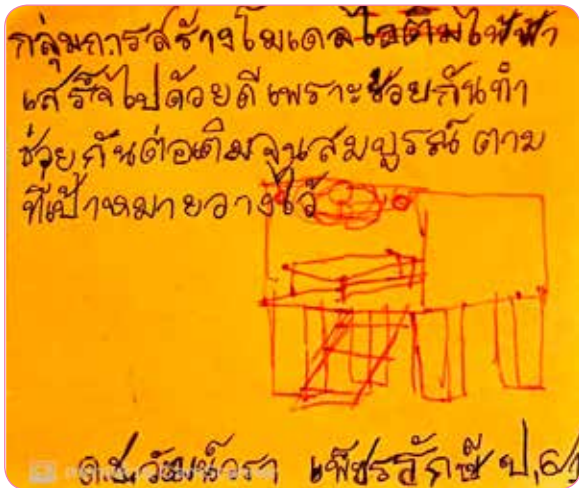 กลุ่มการสร้างโมเดลไอติมไฟฟ้า
เสร็จไปด้วยดี เพราะช่วยกันทำ
ช่วยกันต่อเติมจนสมบูรณ์ ตาม
ที่เป้าหมายวางไว้
เพ็ชรรักษ์ ป.6/1